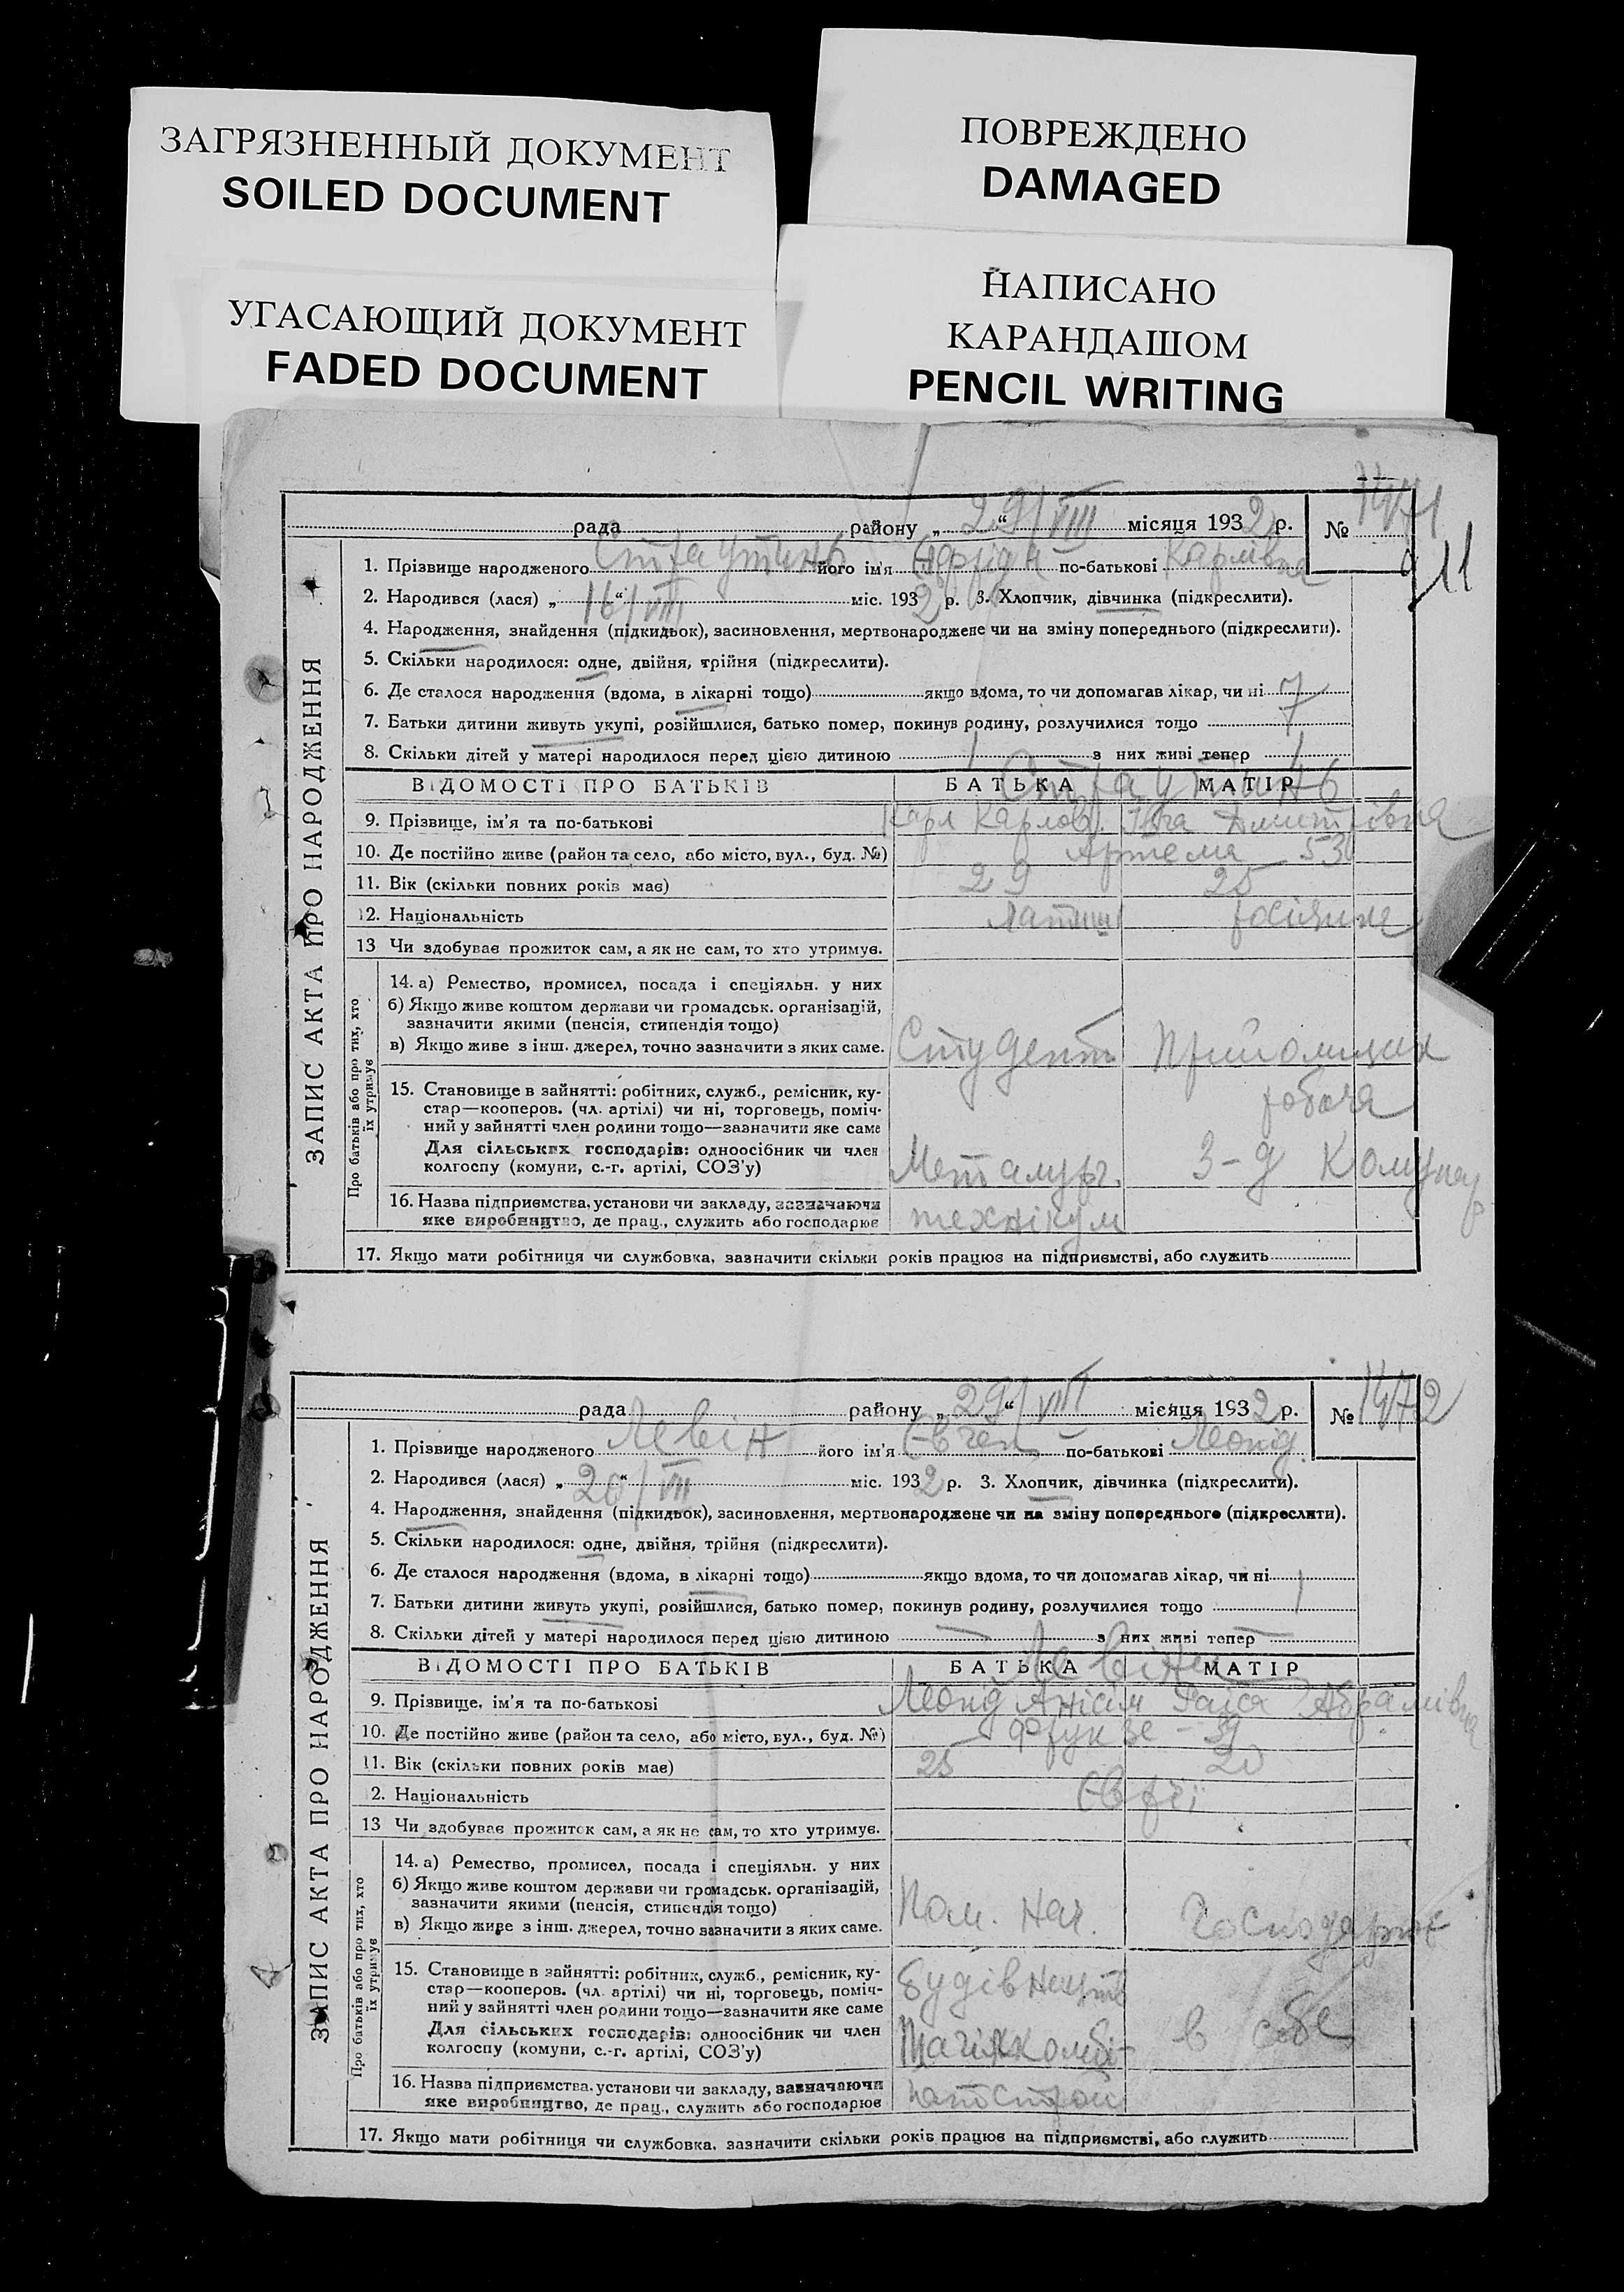 ЗАГРЯЗНЕННЫЙ ДОКУМЕНТ
SOILED DOCUMENT
ПОВРЕЖДЕНО
DAMAGED
УГАСАЮЩИЙ ДОКУМЕНТ
FADED DOCUMENT
НАПИСАНО
КАРАНДАШОМ
PENCIL WRITING
ЗАПИС АКТА ПРО НАРОДЖЕННЯ
рада району „29/VIII“ місяця 1932 р. № 1471
911
1. Прізвище народженого його ім'я по-батькові Карлівна
2. Народився (лася) „16/VIII“ міс. 1932 р. 3. Хлопчик, дівчинка (підкреслити).
4. Народження, знайдення (підкидьок), засиновлення, мертвонароджене чи на зміну попереднього (підкреслити).
5. Скільки народилося: одне, двійня, трійня (підкреслити).
6. Де сталося народження (вдома, в лікарні тощо) якщо вдома, то чи допомагав лікар, чи ні 7
7. Батьки дитини живуть укупі, розійшлися, батько помер, покинув родину, розлучилися тощо
8. Скільки дітей у матері народилося перед цією дитиною 1 з них живі тепер 1
ВІДОМОСТІ ПРО БАТЬКІВ БАТЬКА МАТІР
9. Прізвище, ім'я та по-батькові Карл Карлов. Дмитрівна
10. Де постійно живе (район та село, або місто, вул., буд. №) Артема 53
11. Вік (скільки повних років має) 29 25
12. Національність Латиш росіянка
13 Чи здобуває прожиток сам, а як не сам, то хто утримує.
Про батьків або про тих, хто
їх утримує
14. а) Ремество, промисел, посада і спеціяльн. у них
б) Якщо живе коштом держави чи громадськ. організацій,
зазначити якими (пенсія, стипендія тощо)
в) Якщо живе з інш. джерел, точно зазначити з яких саме. Студент
15. Становище в зайнятті: робітник, служб., ремісник, ку-
стар—кооперов. (чл. артілі) чи ні, торговець, поміч- робоча
ний у зайнятті член родини тощо—зазначити яке саме
Для сільських господарів: одноосібник чи член
колгоспу (комуни, с.-г. артілі, СОЗ'у) Металург. З-д Комунар
16. Назва підприємства, установи чи закладу, зазначаючи
яке виробництво, де прац., служить або господарює технікум
17. Якщо мати робітниця чи службовка, зазначити скільки років працює на підприємстві, або служить
ЗАПИС АКТА ПРО НАРОДЖЕННЯ
рада району „29/VIII“ місяця 1932 р. № 1472
1. Прізвище народженого Левін його ім'я Євген по-батькові Леонід
2. Народився (лася) „20/VIII“ міс. 1932 р. 3. Хлопчик, дівчинка (підкреслити).
4. Народження, знайдення (підкидьок), засиновлення, мертвонароджене чи на зміну попереднього (підкреслити).
5. Скільки народилося: одне, двійня, трійня (підкреслити).
6. Де сталося народження (вдома, в лікарні тощо) якщо вдома, то чи допомагав лікар, чи ні 1
7. Батьки дитини живуть укупі, розійшлися, батько помер, покинув родину, розлучилися тощо
8. Скільки дітей у матері народилося перед цією дитиною — з них живі тепер —
Левіни
ВІДОМОСТІ ПРО БАТЬКІВ БАТЬКА МАТІР
9. Прізвище, ім'я та по-батькові Леонід Анісім Раїса Абрамівна
10. Де постійно живе (район та село, або місто, вул., буд. №) Фрунзе - 39
11. Вік (скільки повних років має) 25 20
2. Національність Євреї
13 Чи здобуває прожиток сам, а як не сам, то хто утримує.
Про батьків або про тих, хто
їх утримує
14. а) Ремество, промисел, посада і спеціяльн. у них
б) Якщо живе коштом держави чи громадськ. організацій,
зазначити якими (пенсія, стипендія тощо)
в) Якщо живе з інш. джерел, точно зазначити з яких саме. Пом. Нач. Господарює
15. Становище в зайнятті: робітник, служб., ремісник, ку-
стар—кооперов. (чл. артілі) чи ні, торговець, поміч-
ний у зайнятті член родини тощо—зазначити яке саме
Для сільських господарів: одноосібник чи член в себе
колгоспу (комуни, с.-г. артілі, СОЗ'у)
16. Назва підприємства, установи чи закладу, зазначаючи
яке виробництво, де прац., служить або господарює
17. Якщо мати робітниця чи службовка, зазначити скільки років працює на підприємстві, або служить